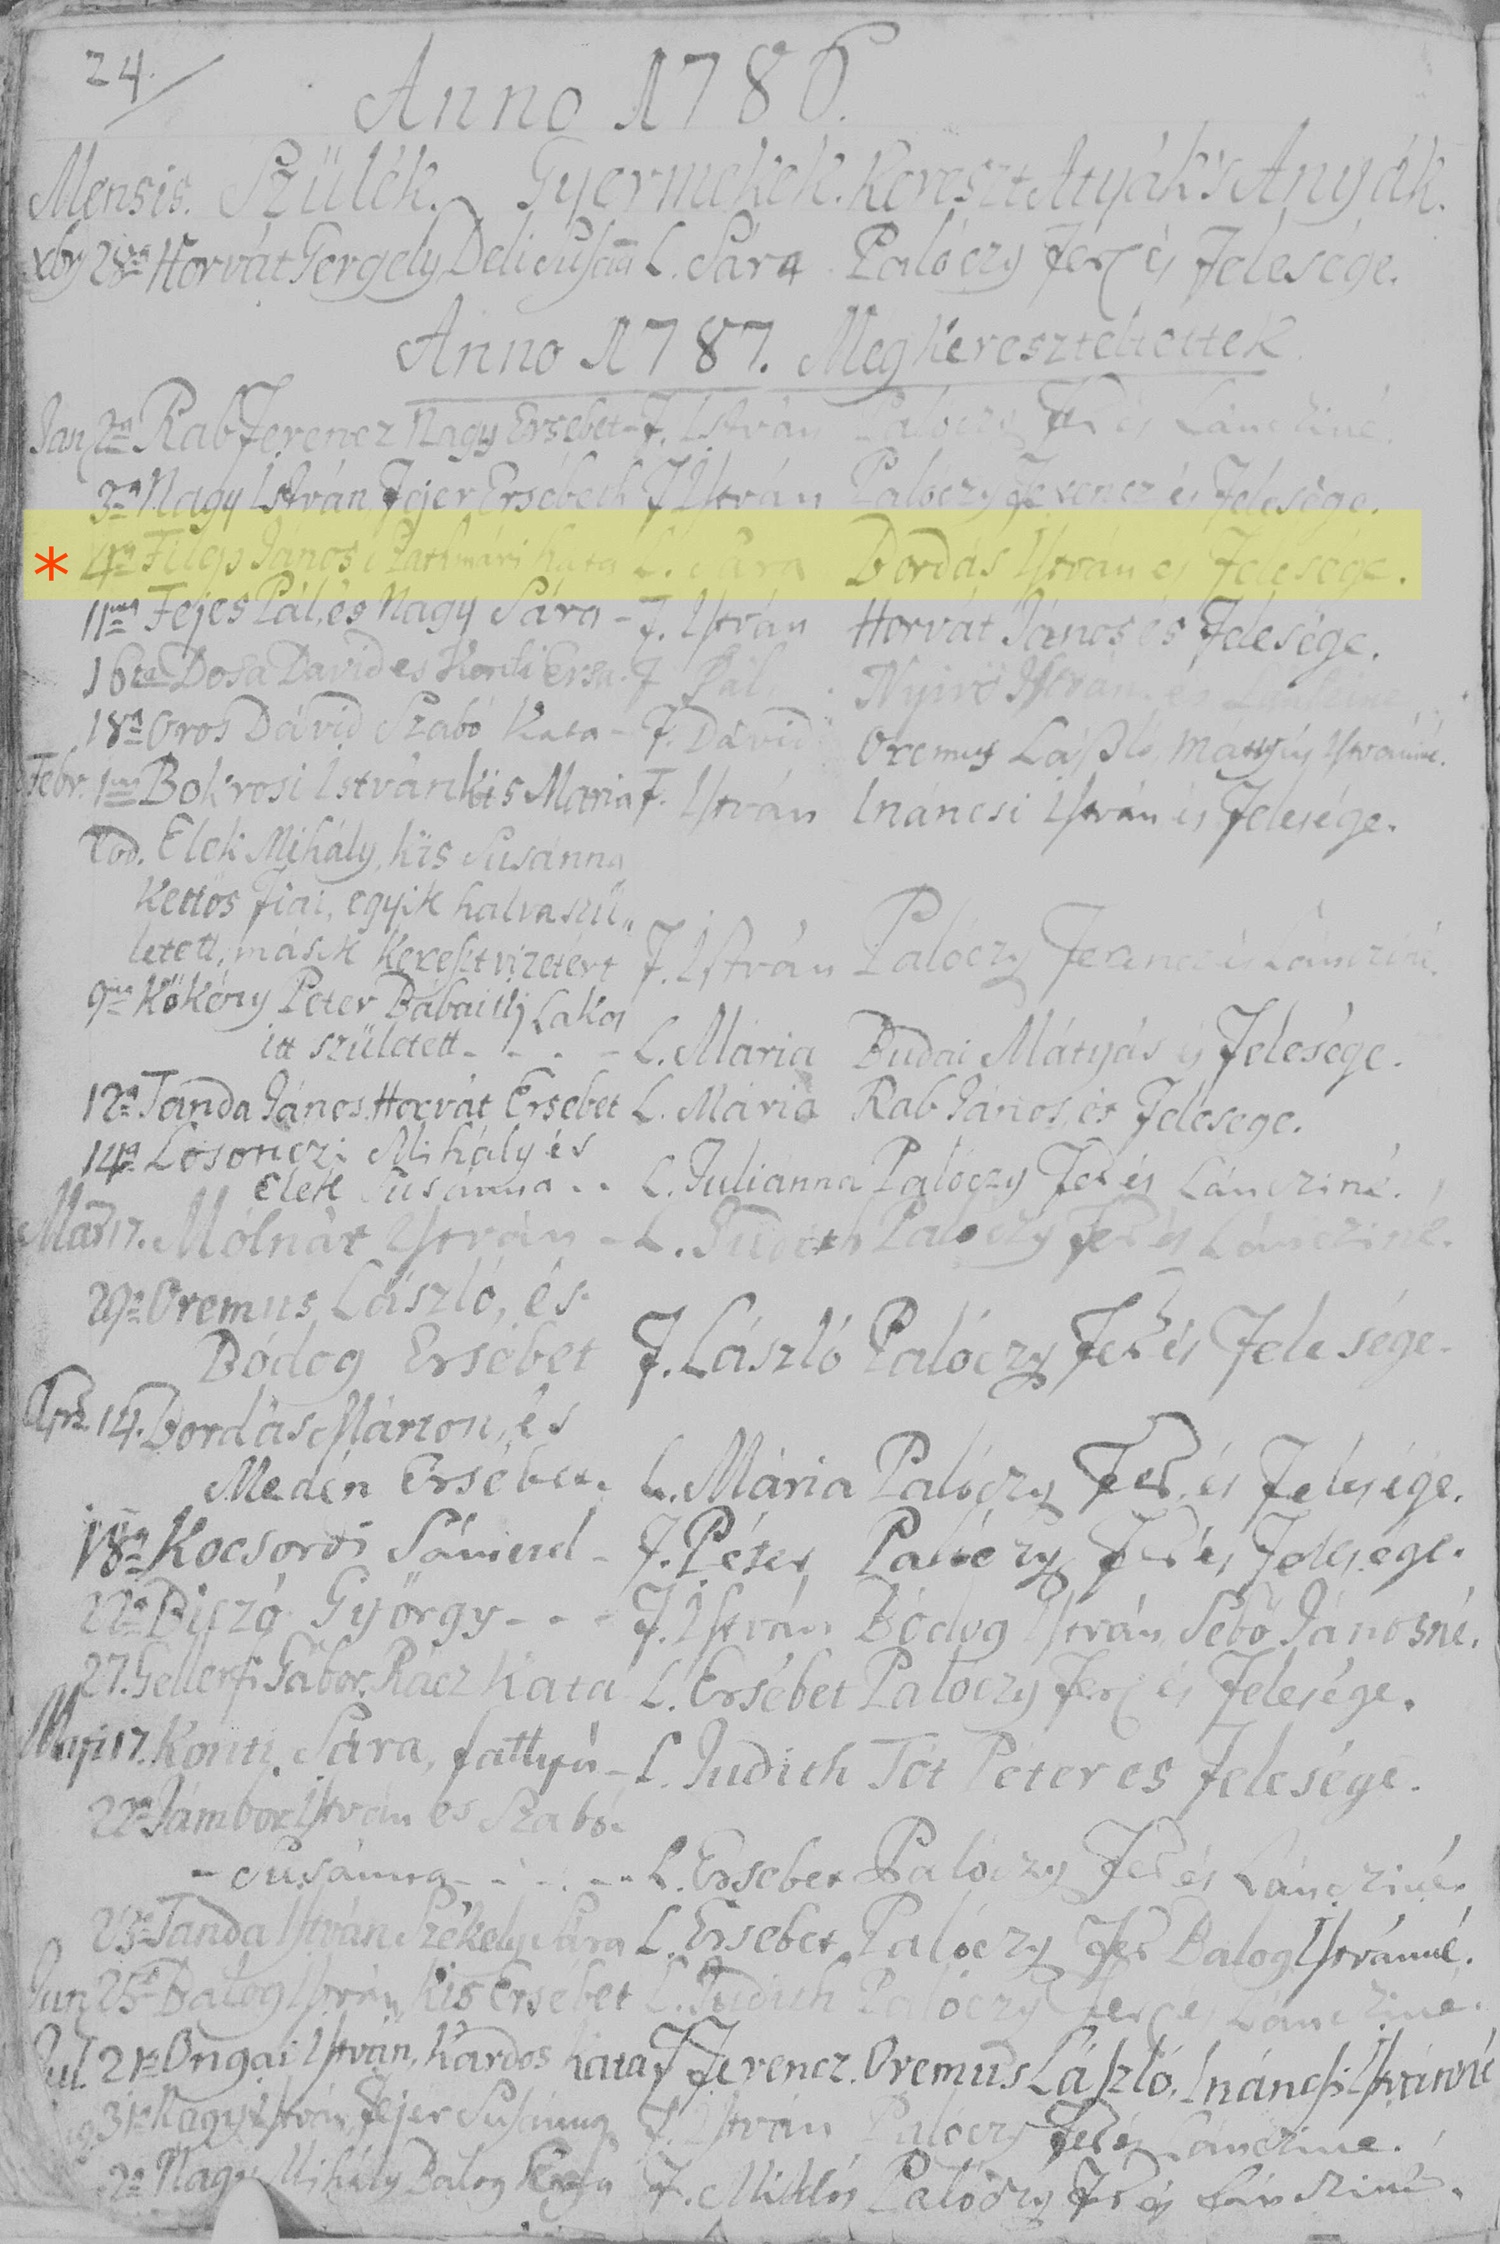 24.
Anno 1786.
Mensis. Szülék. Gyermekek. Kereszt Atyák 's Anyák.
xbr 28a Horvát Gergely Deli Susan L. Sára Palóczy Fer és Felesége.
Anno 1787. Megkereszteltettek
Jan 2a Rab Ferencz Nagy Ersébet - F. István Palóczy Fer és Lánciné.
3a Nagy István Fejer Ersébeth F István Palóczy Ferencz és Felesége.
* 4a Filep János Szathmári Kata L. Sára Bordás István és Felesége.
11ma Fejes Pál, és Nagy Sára - F. István Horvát János és Felesége.
16ta Dosa David es Konti Ersa. F Pál Nyirő István és
18a Oros Dávid Szabó Kata - F. Dávid Oremus László, Mátyás Istvánné.
Febr. 1ma Bokrosi István Kis Maria F. István Ináncsi István és Felesége.
Eod. Elek Mihály, Kis Susánna
Kettős Fiai, egyik halva szü,,
letett, másik Keresztvizetért F. István Palóczy Ferencz és Láncziné.
9na Kökény Péter Bábai Lakos
itt született - - . - L. Mária Budai Mátyás és Felesége.
12a Tanda János Horvát Ersébet L. Mária Rab János, és Felesege.
14a Losonczi Mihály és
Elek Susánna . . L. Juliánna Palóczy Fer és Láncziné.
Mar 17. Mólnár István - L. Judith Palóczy Fer és Láncziné.
29a Oremus László, és
Bódog Ersébet F. László Palóczy Fer és Felesége.
Apr. 14. Bordás Márton, és
Medén Ersébet. L. Mária Palóczy Fer. és Felesége.
18a Kocsordi Sámuel - F. Péter Palóczy Fer és Felesége.
22a Diszó György - - - F. István Bódog István, Sebő Jánosné.
27. Gellerfi Gábor, Rácz Kata L. Ersébet Palóczy Fer és Felesége.
Maji 17. Konti Sára, fattyú - L. Judith Tót Péter es Felesége.
22a Jámbor István es Szabó
- Susánna - - . . - - L. Ersebet Palóczy Fer és Láncziné.
Tanda István Székely Sára L. Ersebet Palóczy Fer Balog Istvánné.
Jun 25a Balog István Kis Ersébet L. Judith Palóczy Fer és Láncziné.
Jul. 21a Ongai István, Kardos Kata F Ferencz. Oremus László, Ináncsi Istvánné
31a Nagy István Fejer Susánna F. István Palóczy Fer és Láncziné.
2a Nagy Mihály Balog Kata F. Miklós Palóczy Fer és Láncziné.